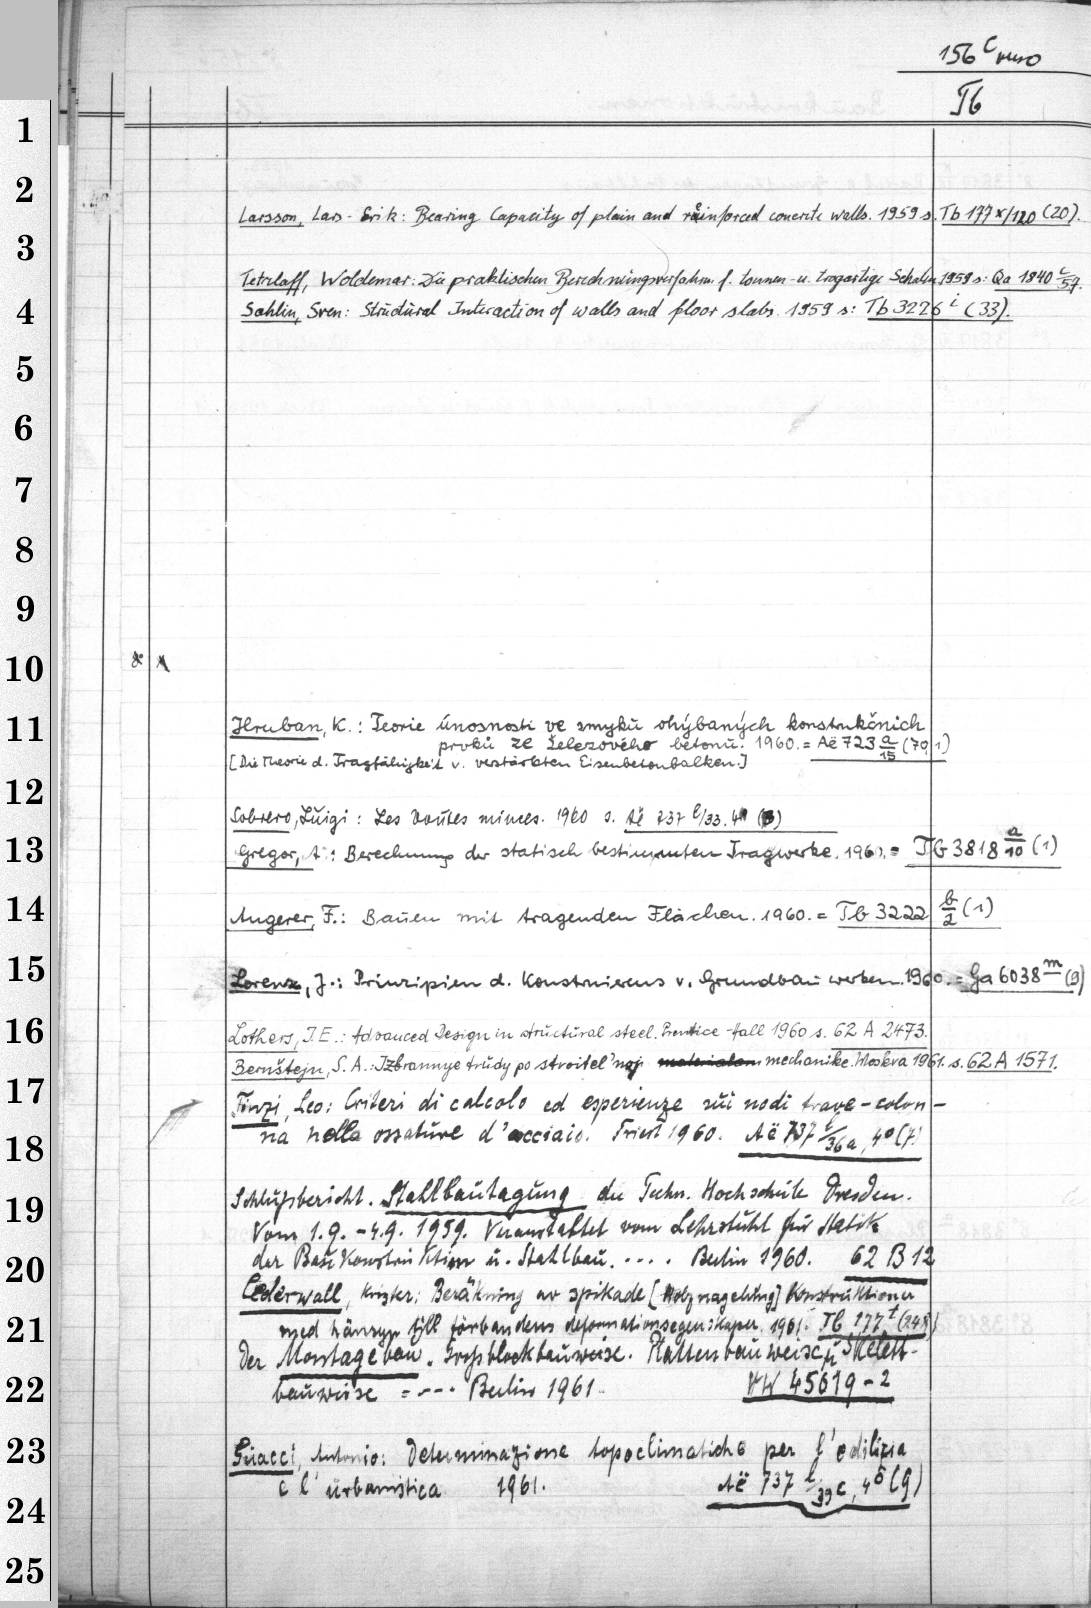 156 c verso
Tb
1
2
Larsson, Lars-Erik: Bearing Capacity of plain and reinforced concrete walls. 1959 s. Tb 177 x/120 (20).
3
Tetzlaff, Woldemar: Die praktischen Berechnungsverfahren f. tonnen- u. trogartige Schalen 1959 s: Qa 1840 c/57.
4
Sahlin, Sven: Structural Interaction of walls and floor slabs. 1959 s: Tb 3226 i (33).
5
6
7
8
9
10
11
Hruban, K.: Teorie únosnosti ve smyku ohýbaných konstrukčnich
prvků ze železového betonu. 1960. = Aë 723 a/15 (70,1)
[Die Theorie d. Tragfähigkeit v. verstärkten Eisenbetonbalken.]
12
Sobrero, Luigi: Les voutes minces. 1960 s. Aë 737 l/33. 4°
13
Gregor, A.: Berechnung der statisch bestimmten Tragwerke. 1960. = Tb 3818 a/10 (1)
14
Angerer, F.: Bauen mit tragenden Flächen. 1960. = Tb 3222 b/2 (1)
15
Lorenz, J.: Prinzipien d. Konstruierens v. Grundbauwerken. 1960. = Ga 6038 m (9)
16
Lothers, J.E.: Advanced Design in structural steel. Prentice-Hall 1960 s. 62 A 2473.
Bernštejn, S. A.: Izbrannye trudy po stroitel'noj mechanike. Moskva 1961. s. 62 A 1571.
17
Finzi, Leo: Criteri di calcolo ed esperienze sui nodi trave-colon-
na nella ossature d'acciaio. Triest 1960. Aë 737 l/36a, 4° (7)
18
19
Schlußbericht. Stahlbautagung der Techn. Hochschule Dresden.
Vom 1.9. - 4.9. 1959. Veranstaltet vom Lehrstuhl für Statik
der Baukonstruktion u. Stahlbau. .... Berlin 1960. 62 B 12
20
Cederwall, Krister: Beräkning av spikade [Holznagelung] Konstruktioner
21
med hänsyn till förbandens deformationsegenskaper. 1961. Tb 177 t (248)
Der Montagebau. Großblockbauweise. Plattenbauweise u. Skelett-
22
bauweise = ---- Berlin 1961. HW 45619-2
23
Giacci, Antonio: Determinazione topoclimatiche per l'edilizia
e l'urbanistica 1961. Aë 737 l/39c, 4° (9)
24
25